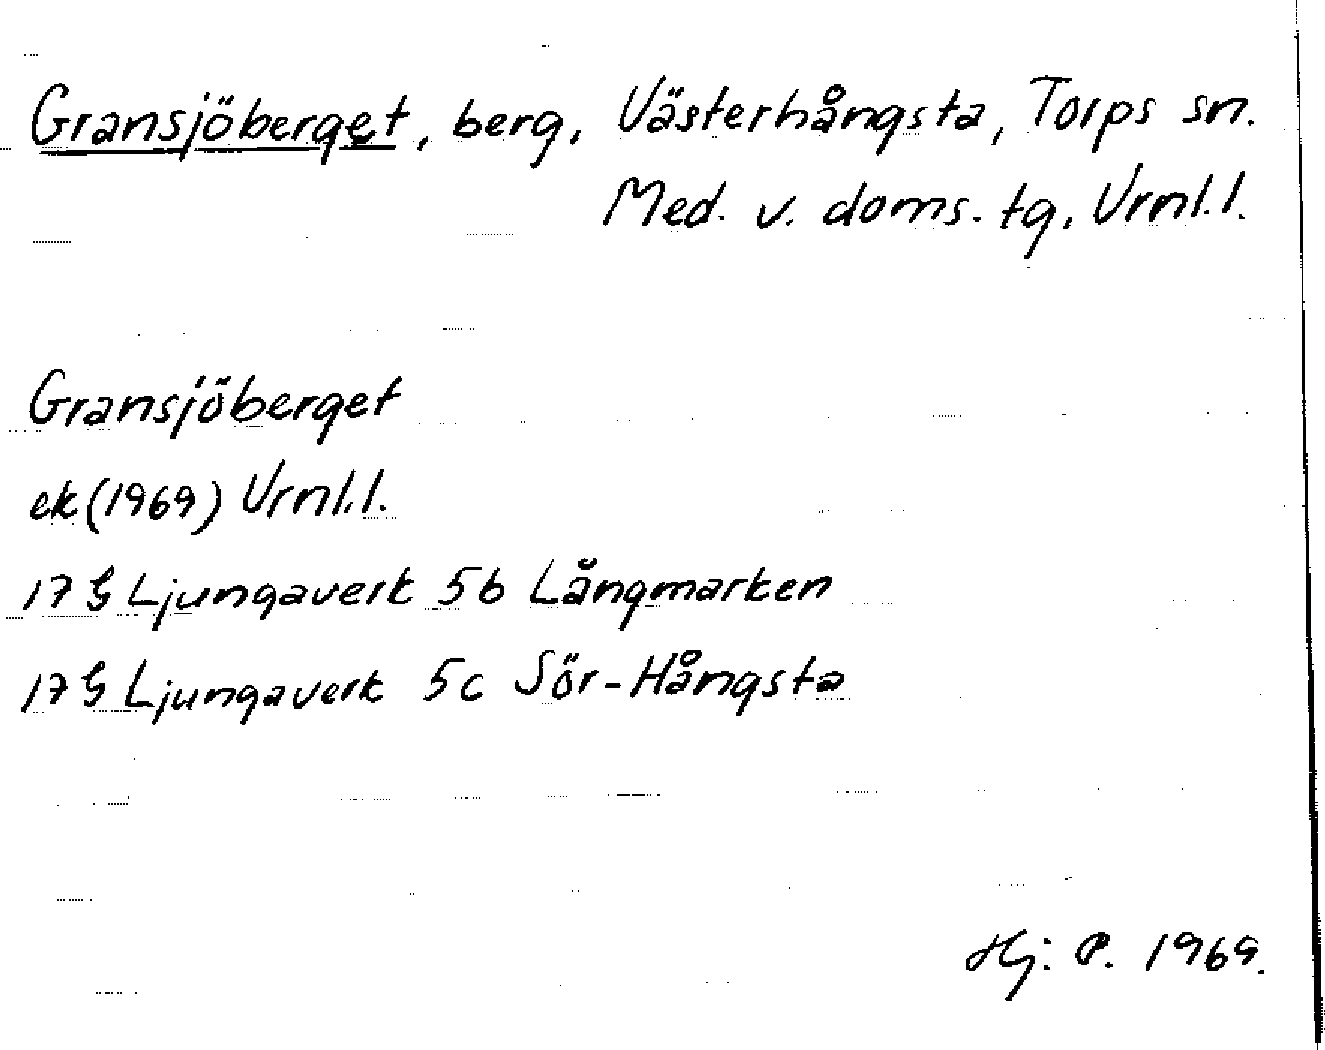 Gransjöberget, berg, Västerhångsta, Torps sn.
Med. v. doms. tg, Vrnl.l.
Gransjöberget
ek (1969) Vrnl.l.
17 G Ljungaverk 5b Långmarken
17 G Ljungaverk 5c Sör-Hångsta
Hj: P. 1969.